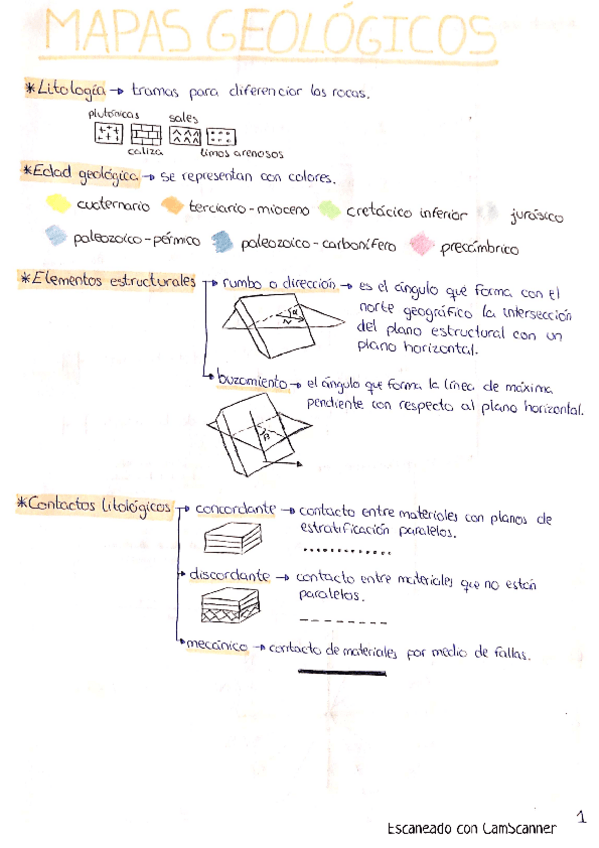 MAPAS GEOLÓGICOS
*Litología → tramas para diferenciar las rocas.
plutónicas
sales
caliza
limos arenosos
*Edad geológica → se representan con colores.
cuaternario
terciario-mioceno
cretácico inferior
jurásico
paleozoico-pérmico
paleozoico-carbonífero
precámbrico
*Elementos estructurales → rumbo o dirección → es el ángulo que forma con el
norte geográfico la intersección
del plano estructural con un
plano horizontal.
α
N
buzamiento → el ángulo que forma la línea de máxima
pendiente con respecto al plano horizontal.
β
*Contactos litológicos → concordante → contacto entre materiales con planos de
estratificación paralelos.
discordante → contacto entre materiales que no están
paralelos.
mecánico → contacto de materiales por medio de fallas.
1
Escaneado con CamScanner